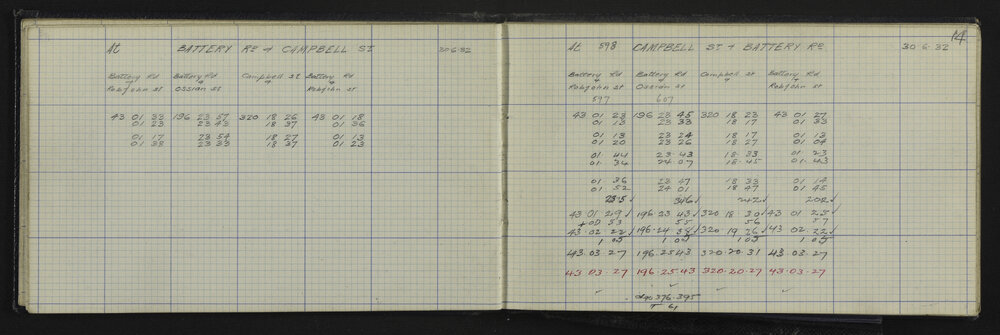 At BATTERY RD & CAMPBELL ST 30.6.32
Battery Rd Battery Rd Campbell st Battery Rd
& & & &
Robjohn st Ossian st Robjohn st
43 01 33 196 23 57 320 18 26 43 01 18
01 23 23 43 18 37 01 36
01 17 23 54 18 27 01 13
01 38 23 33 18 37 01 23
14
At 598 CAMPBELL ST & BATTERY RD 30.6.32
Battery Rd Battery Rd Campbell st Battery Rd
& & & &
Robjohn st Ossian st Robjohn st
597 607
43 01 23 196 23 45 320 18 23 43 01 27
01 13 23 33 18 17 01 33
01 13 23 24 18 17 01 13
01 20 23 26 18 27 01 04
01 44 23 43 18 33 01 23
01 34 24 07 18 45 01 43
01 36 23 47 18 33 01 14
01 52 24 01 18 47 01 45
235 346 242 202
43 01 29 196 23 43 320 18 30 43 01 25
+00 53 55 56 57
43 02 22 196 24 38 320 19 26 43 02 22
1 05 1 05 1 05 1 05
43.03.27 196.25 43 320.20.31 43.03.27
43.03.27 196.25 43 320.20.27 43.03.27
376.395